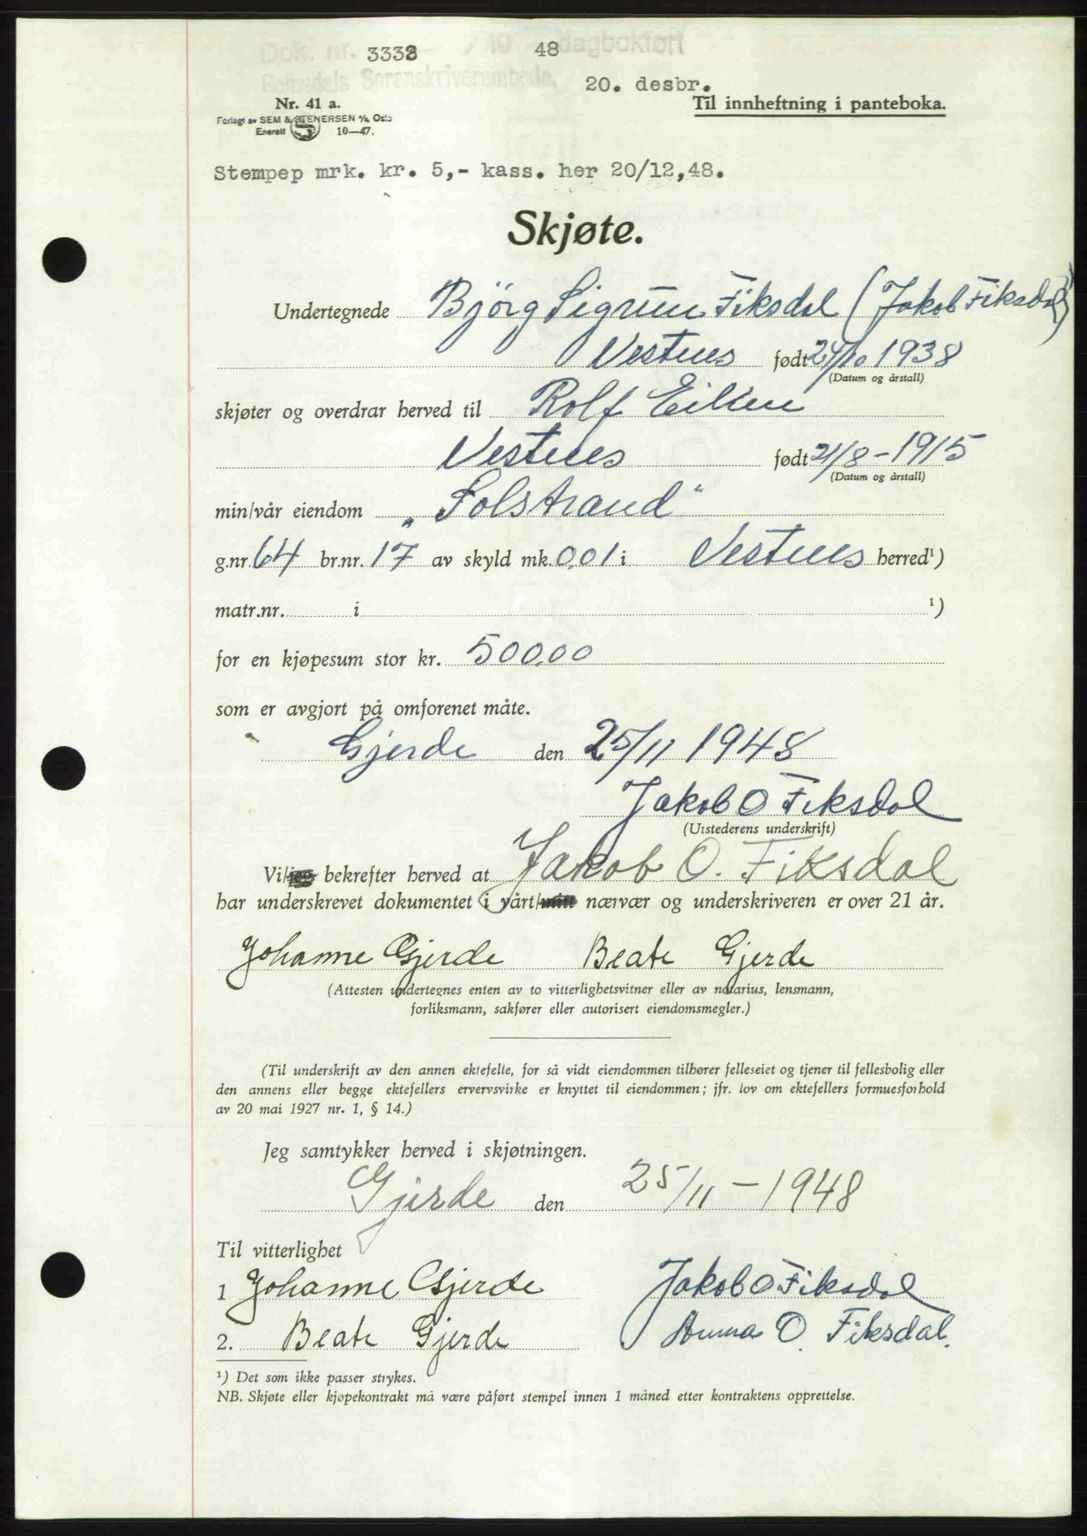 Dok. nr. 3338 /19 48 dagbokført
Romsdals Sorenskriverembede, 20. desbr.
Nr. 41 a.
Til innheftning i panteboka.
Forlagt av SEM & STENERSEN A/s, Oslo
Enerett S 10—47.
Stempep mrk. kr. 5,- kass. her 20/12,48.
Skjøte.
Undertegnede Bjørg Sigrun Fiksdal (Jakob Fiksdal)
Vestnes født 24/10 1938
(Datum og årstall)
skjøter og overdrar herved til Rolf Eiken
Vestnes født 21/8 - 1915
(Datum og årstall)
min/vår eiendom „Solstrand"
g.nr. 64 br.nr. 17 av skyld mk. 0,01 i Vestnes herred¹)
matr.nr. i ¹)
for en kjøpesum stor kr. 500,00
som er avgjort på omforenet måte.
Gjerde den 25/11 1948
Jakob O Fiksdal
(Utstederens underskrift)
Vi/jeg bekrefter herved at Jakob O. Fiksdal
har underskrevet dokumentet i vårt/mitt nærvær og underskriveren er over 21 år.
Johanne Gjerde Beate Gjerde
(Attesten undertegnes enten av to vitterlighetsvitner eller av notarius, lensmann,
forliksmann, sakfører eller autorisert eiendomsmegler.)
(Til underskrift av den annen ektefelle, for så vidt eiendommen tilhører felleseiet og tjener til fellesbolig eller
den annens eller begge ektefellers ervervsvirke er knyttet til eiendommen; jfr. lov om ektefellers formuesforhold
av 20 mai 1927 nr. 1, § 14.)
Jeg samtykker herved i skjøtningen.
Gjerde den 25/11 - 1948
Til vitterlighet
1 Johanne Gjerde Jakob O Fiksdal
2. Beate Gjerde Anna O. Fiksdal.
¹) Det som ikke passer strykes.
NB. Skjøte eller kjøpekontrakt må være påført stempel innen 1 måned etter kontraktens opprettelse.